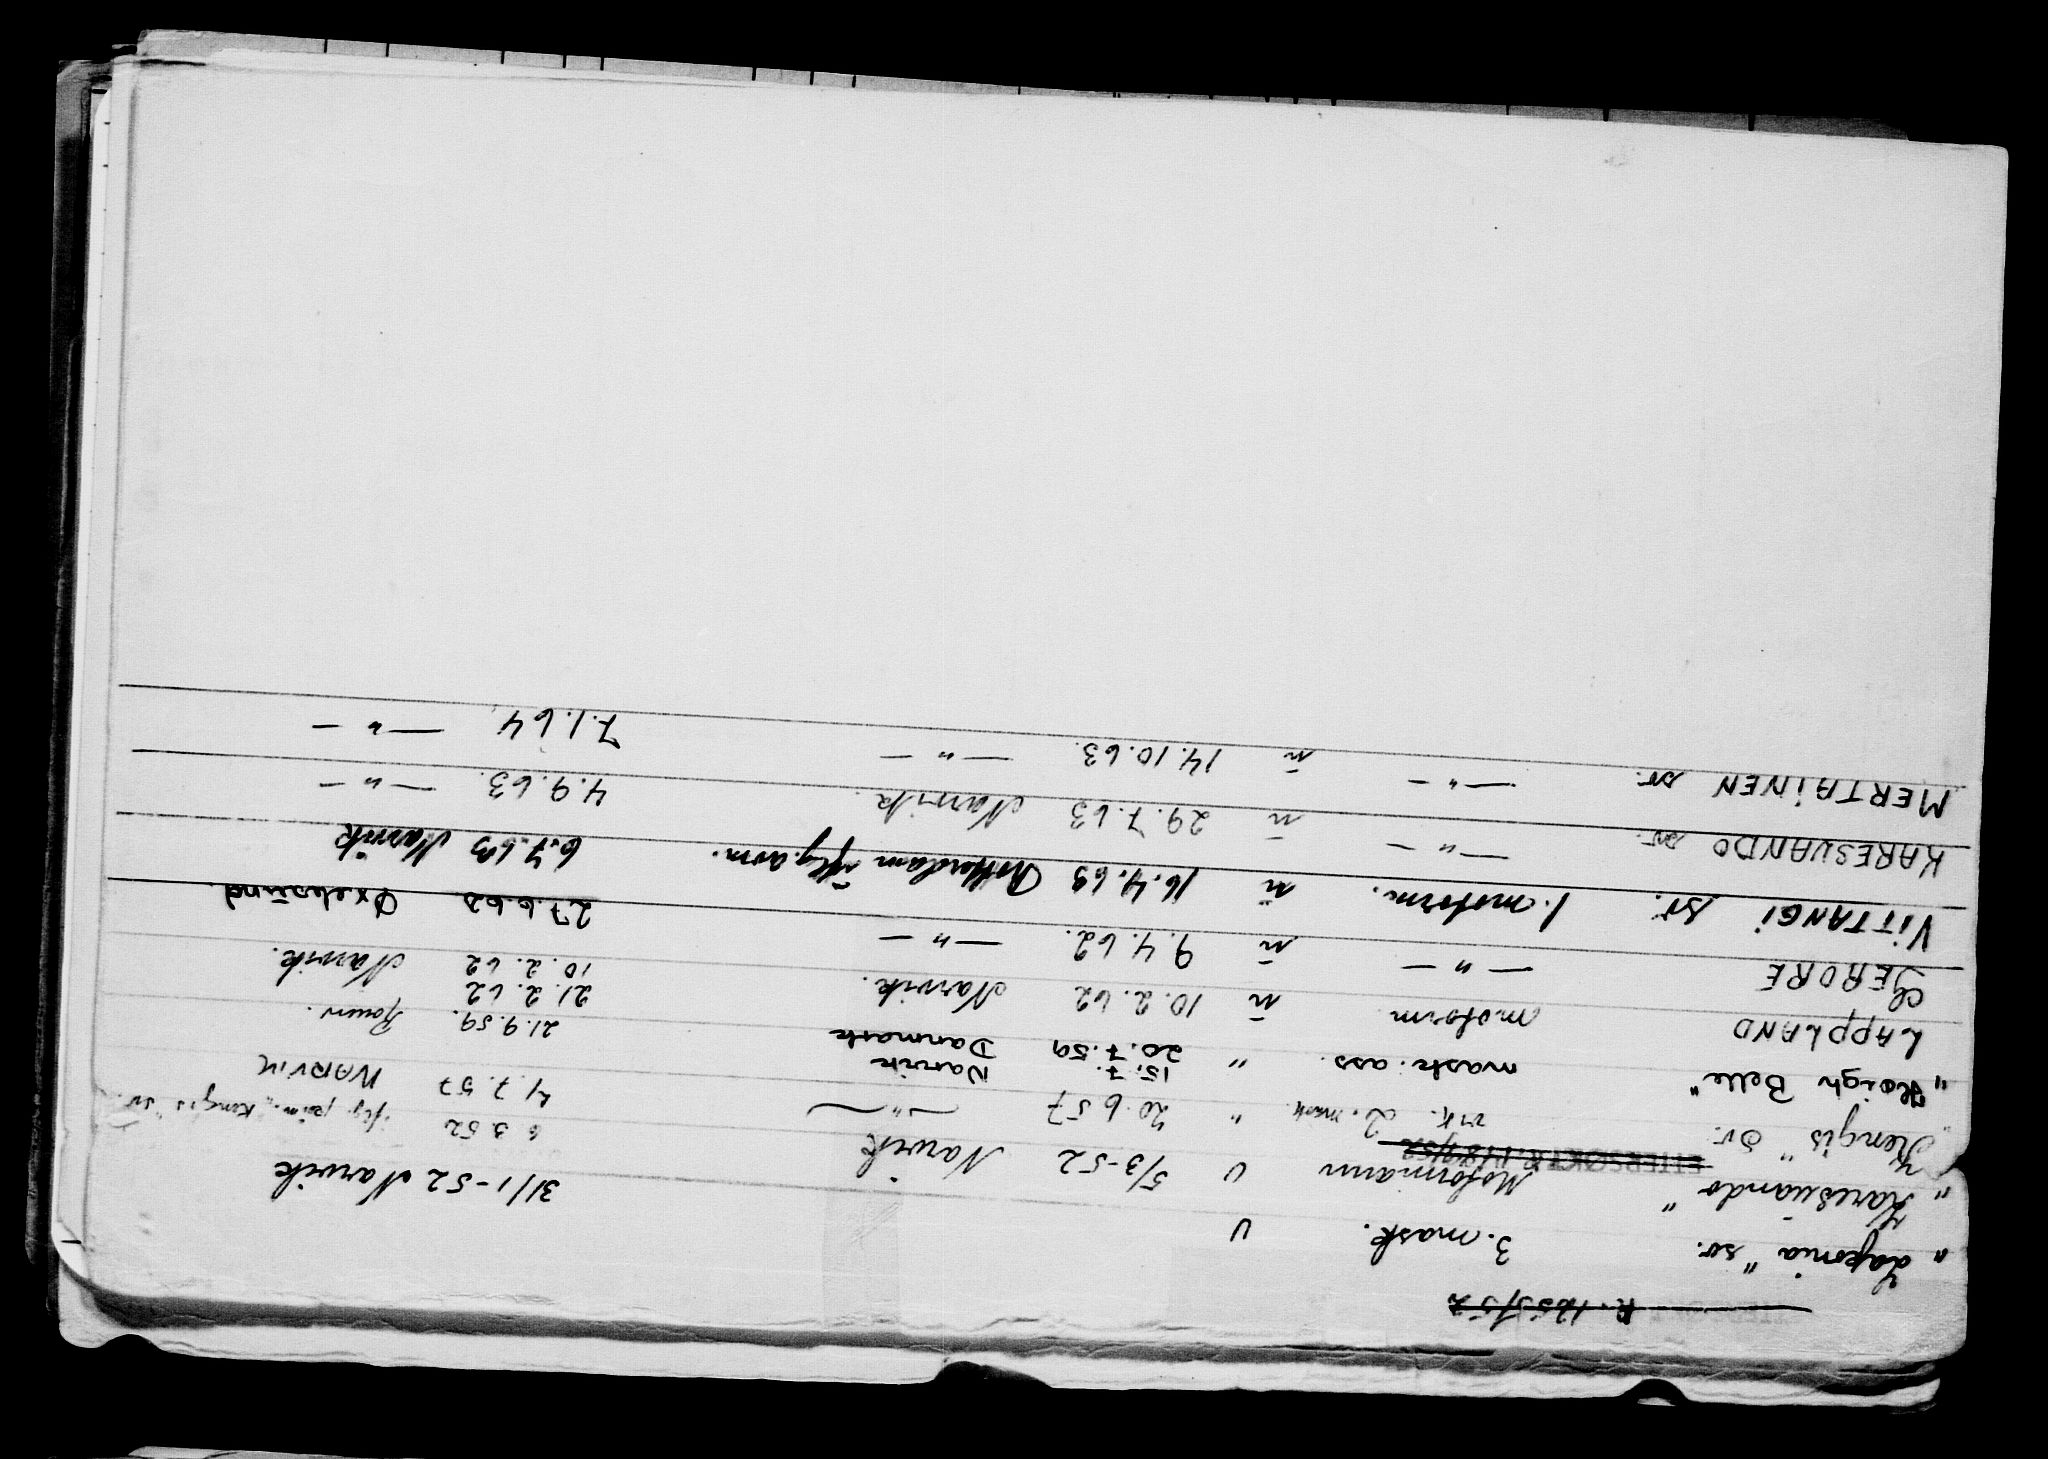 R. 1855/52
"Laponia" sv. 3. mask. U
"Karesuando" Motormann U 5/3-52 Narvik 31/1-52 Narvik
ETTERSØKT R.
"Kengis" sv. vik. 2. mask. " 20.6 57 —"— 6 3.52
4.7.57 NARVIK
"Raigh Belle" mask. ass. " 15.7. Narvik
20.7.59 Danmark 21.9.59. Rouen.
LAPPLAND motorm ü 10.2.62 Narvik. 21.2.62
10.2.62 Narvik.
GERORE —"— ü 9.4.62. —"— 27.6.62 Oxelösund.
VITTANGI sv. 1. motorm. ü 16.4.63 Rotterdam 6.7.63 Narvik
KARESUANDO sv. —"— ü 29.7.63 Narvik. 4.9.63. —"—
MERTAINEN sv. —"— ü 14.10.63. —"— 7.1.64 —"—